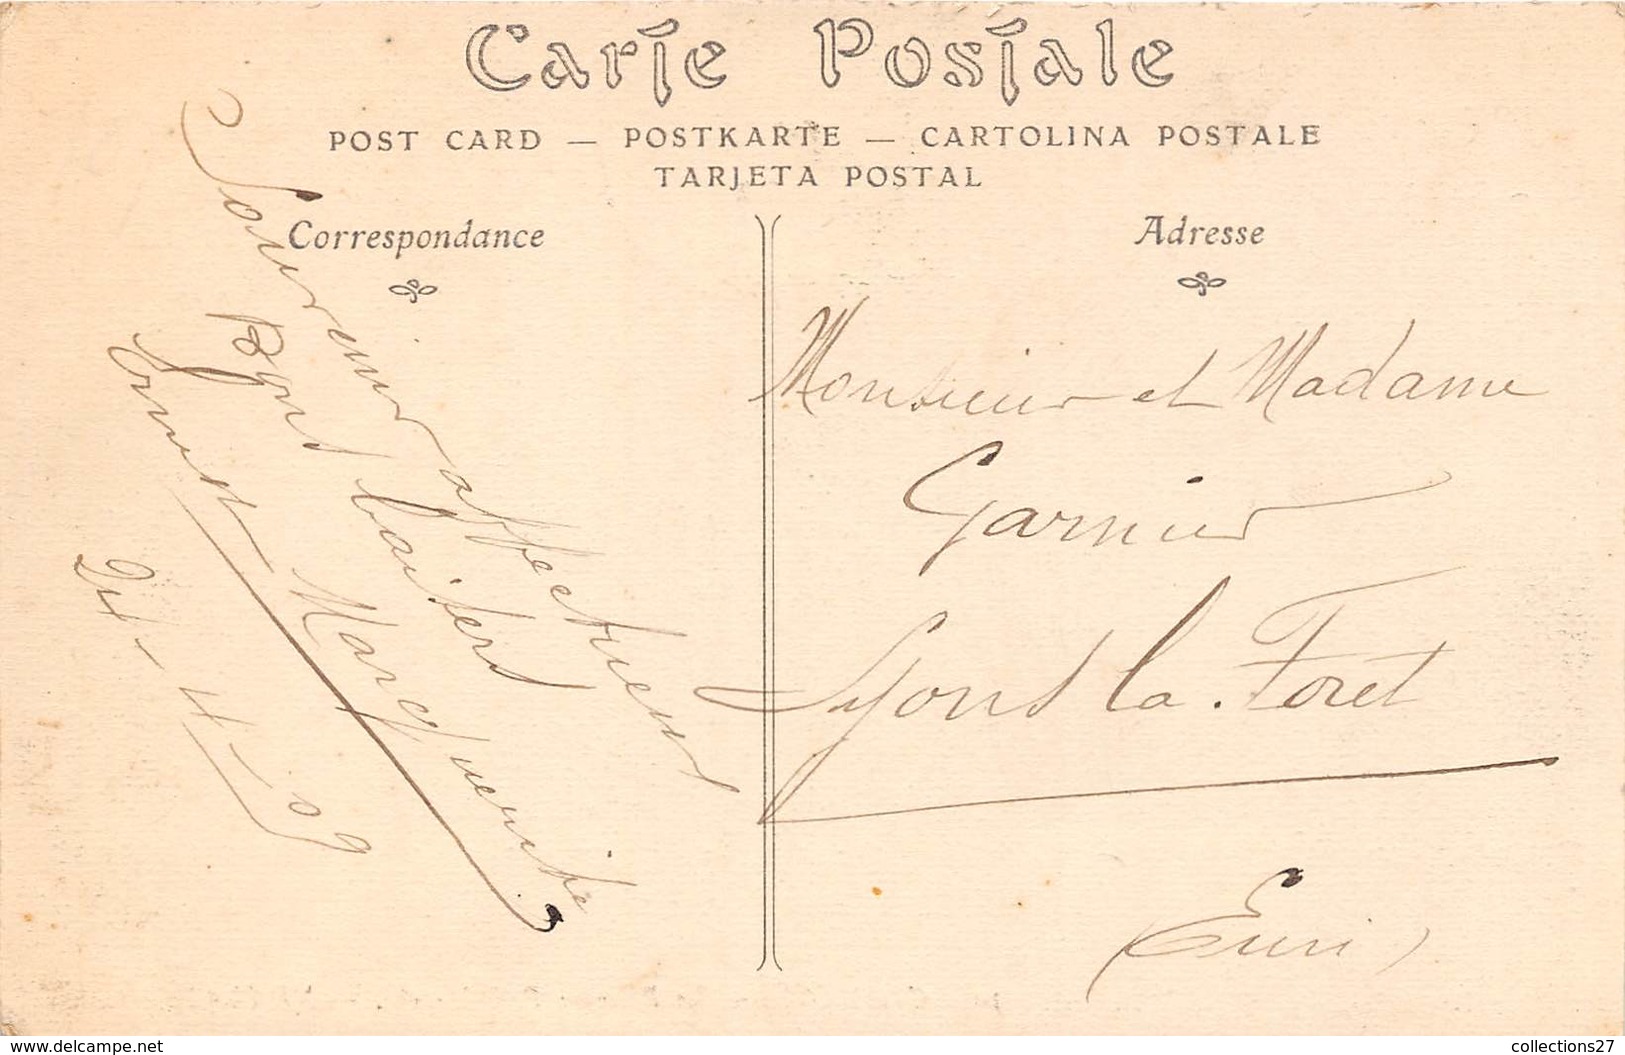 Carte Postale
POST CARD — POSTKARTE — CARTOLINA POSTALE
TARJETA POSTAL
Correspondance
Souvenir affectueux
Bons baisers
Ernest Marguerite
24-4-09
Adresse
Monsieur et Madame
Garnier
Lyons la Forêt
(Eure)
www.delcampe.net
collections27